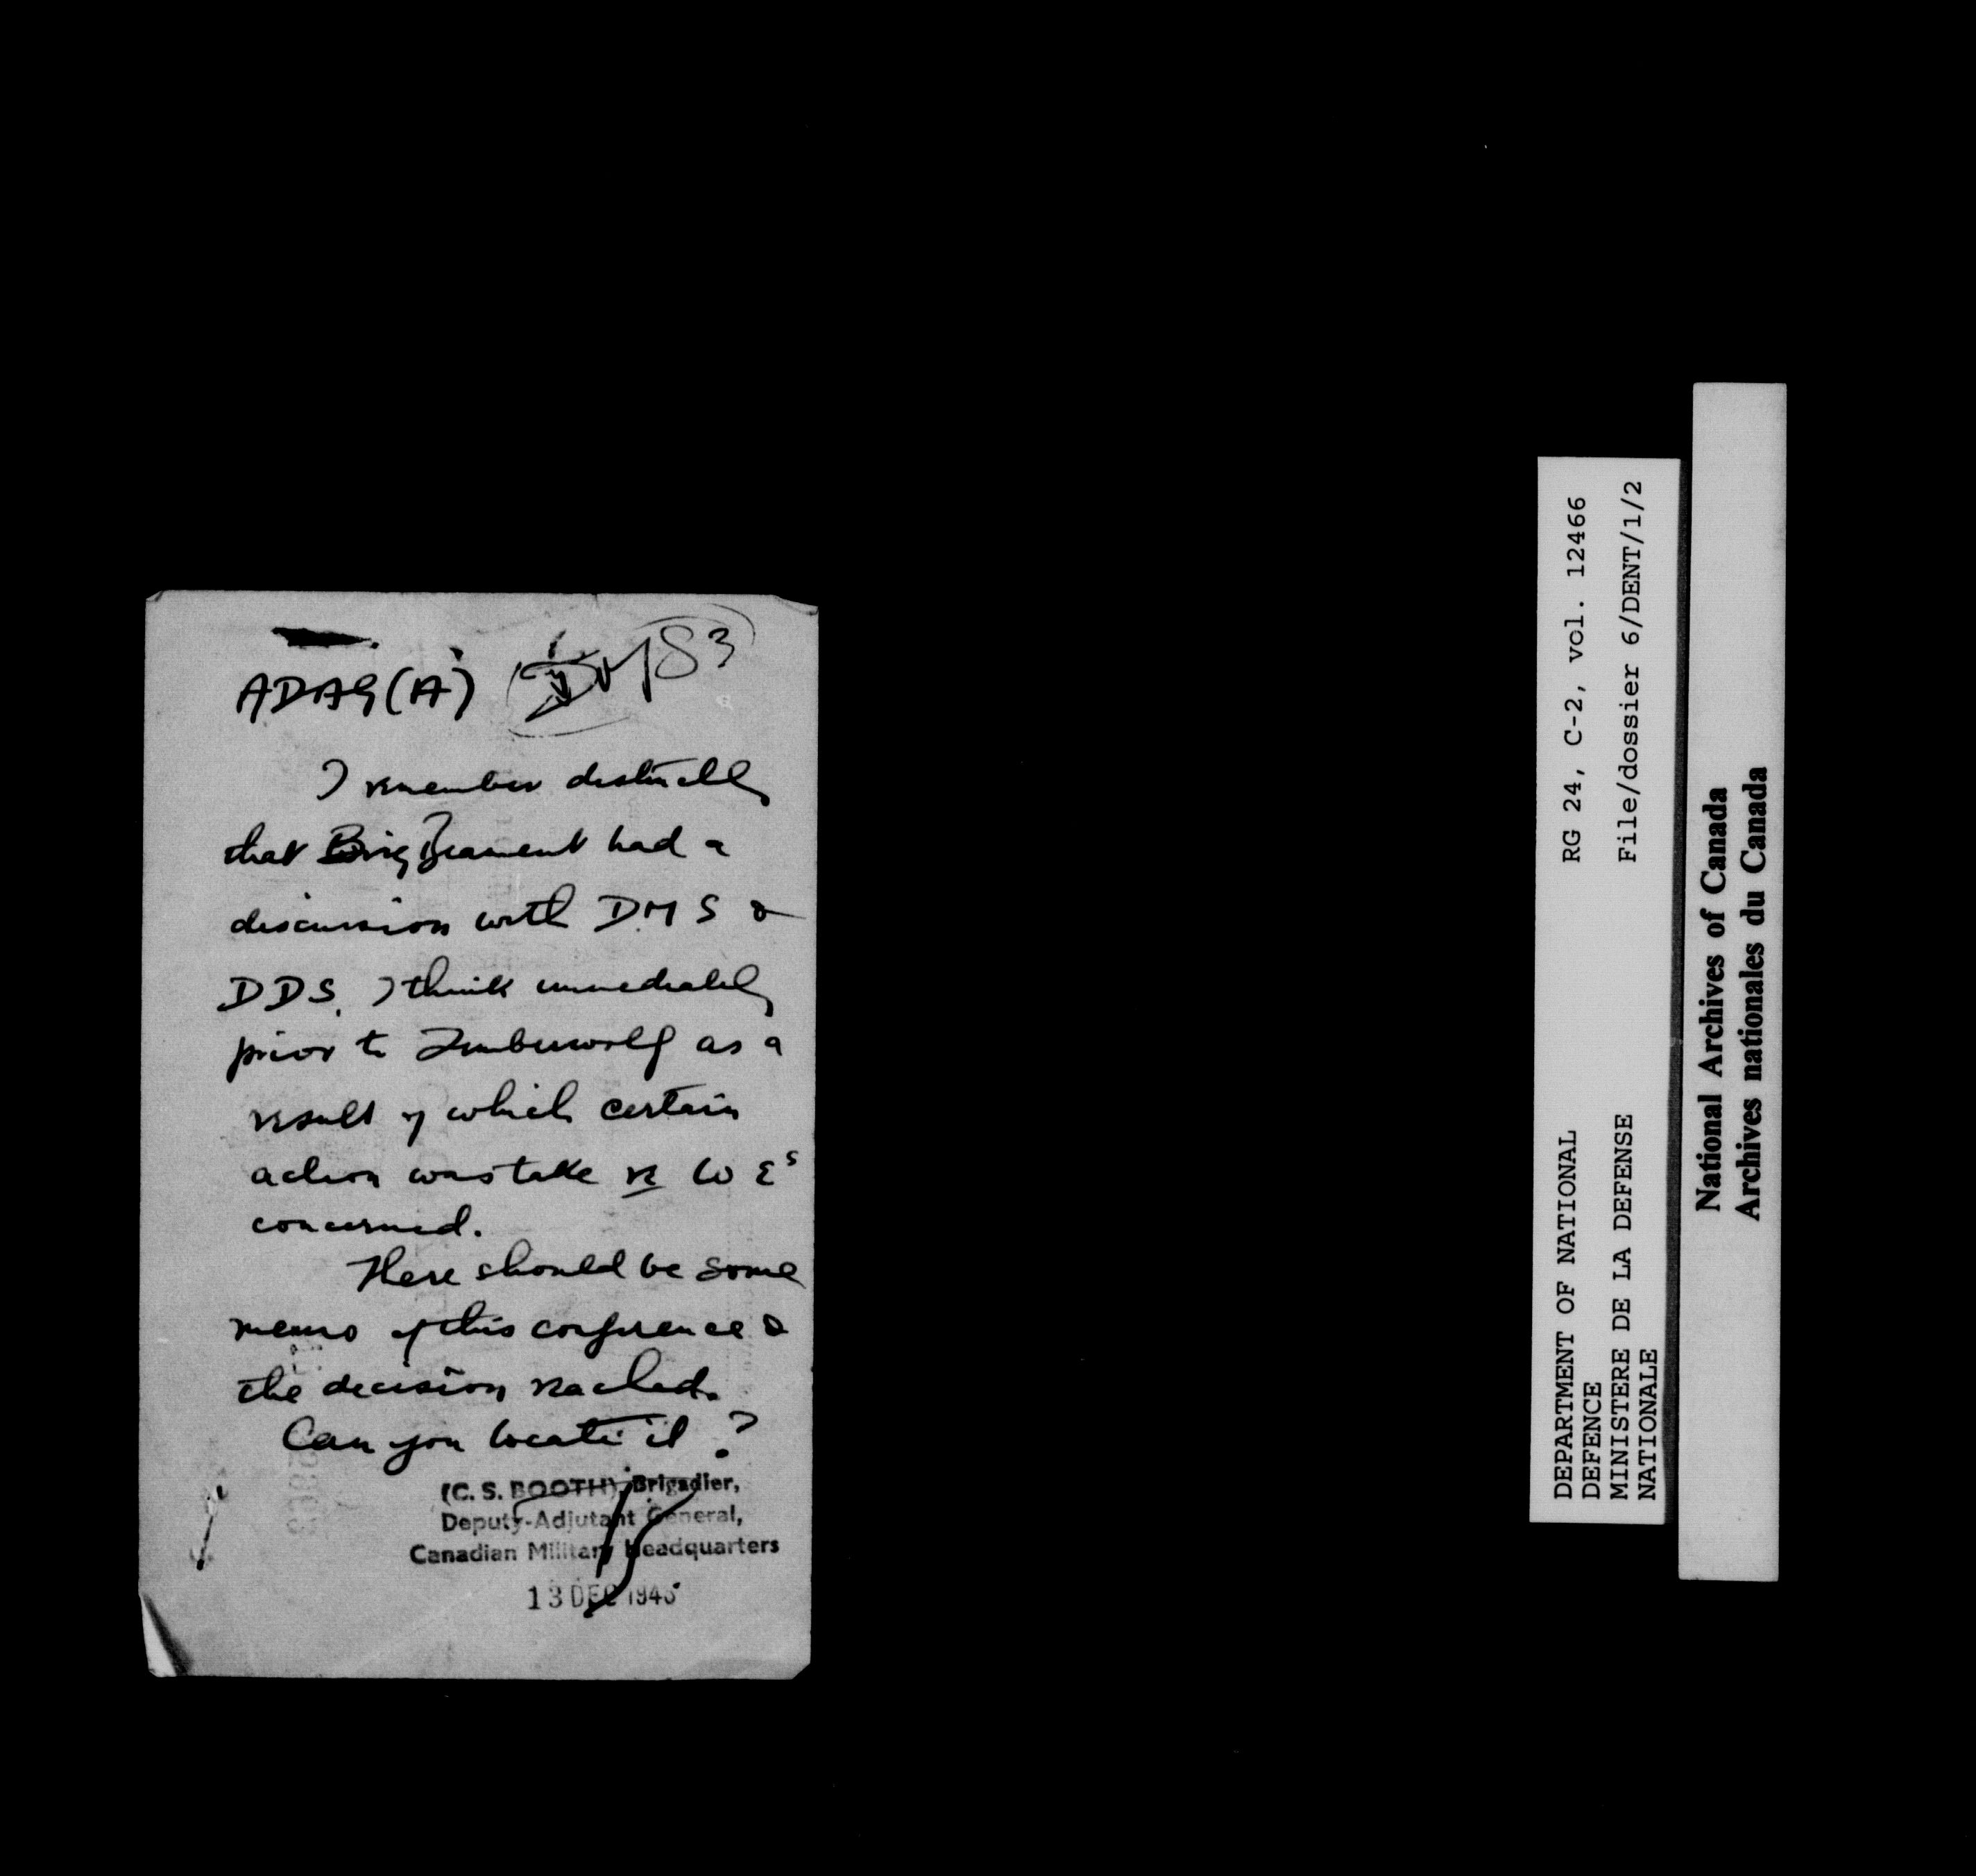 ADAG(A)
83
I remember distinctly
that Brig Beament had a
discussion with DMS &
DDS. I think immediately
prior to Timberwolf as a
result of which certain
action was take re W Es
concerned.
There should be some
memo of this conference &
the decision reached.
Can you locate it?
(C. S. BOOTH) Brigadier,
Deputy-Adjutant General,
Canadian Military Headquarters
13 DEC 1945
RG 24, C-2, vol. 12466
File/dossier 6/DENT/1/2
DEPARTMENT OF NATIONAL
DEFENCE
MINISTERE DE LA DEFENSE
NATIONALE
National Archives of Canada
Archives nationales du Canada